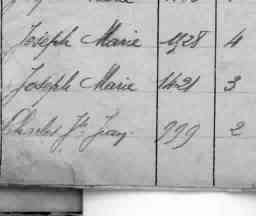 Joseph Marie 1928 4
Joseph Marie 1421 3
Charles Jh Jean 999 2